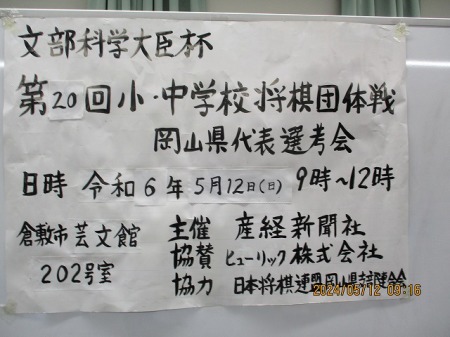 文部科学大臣杯
第20回小・中学校将棋団体戦
岡山県代表選考会
日時 令和6年5月12日(日) 9時~12時
倉敷市芸文館 主催 産経新聞社
202号室 協賛 ヒューリック株式会社
協力 日本将棋連盟岡山県支部連合会
2024/05/12 09:16